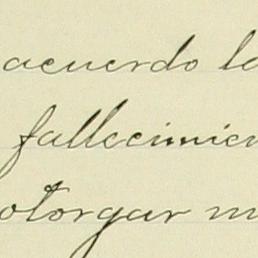 acuerdo la
fallecimien
otorgar m